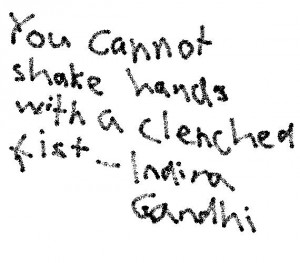 You cannot
shake hands
with a clenched
fist - Indira
Gandhi